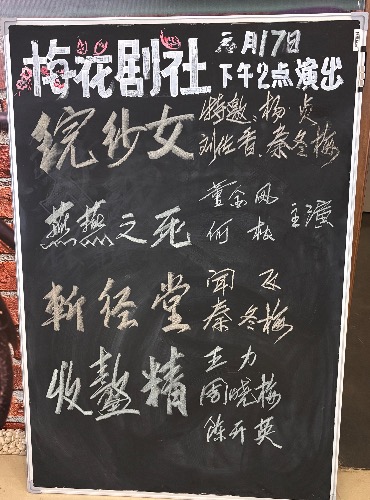 梅花剧社
月17日
下午2点演出
浣纱女
特邀、杨贞
刘佐香、秦冬梅
燕燕之死
董金凤
何敏
主演
斩经堂
闻飞
秦冬梅
收鳌精
王力
周晓梅
陈开英